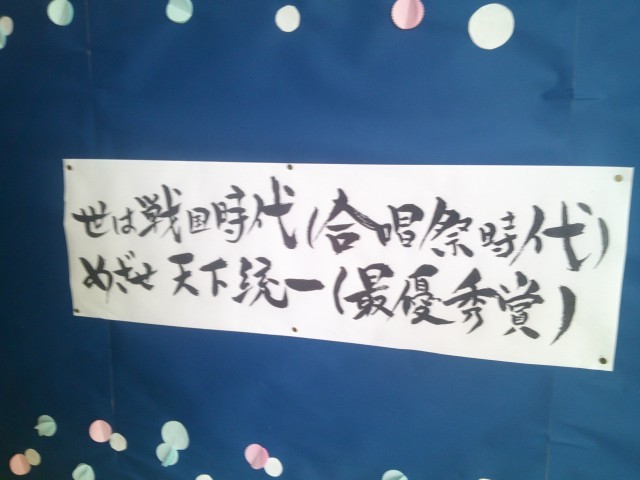 世は戦国時代(合唱祭時代)
めざせ天下統一(最優秀賞)